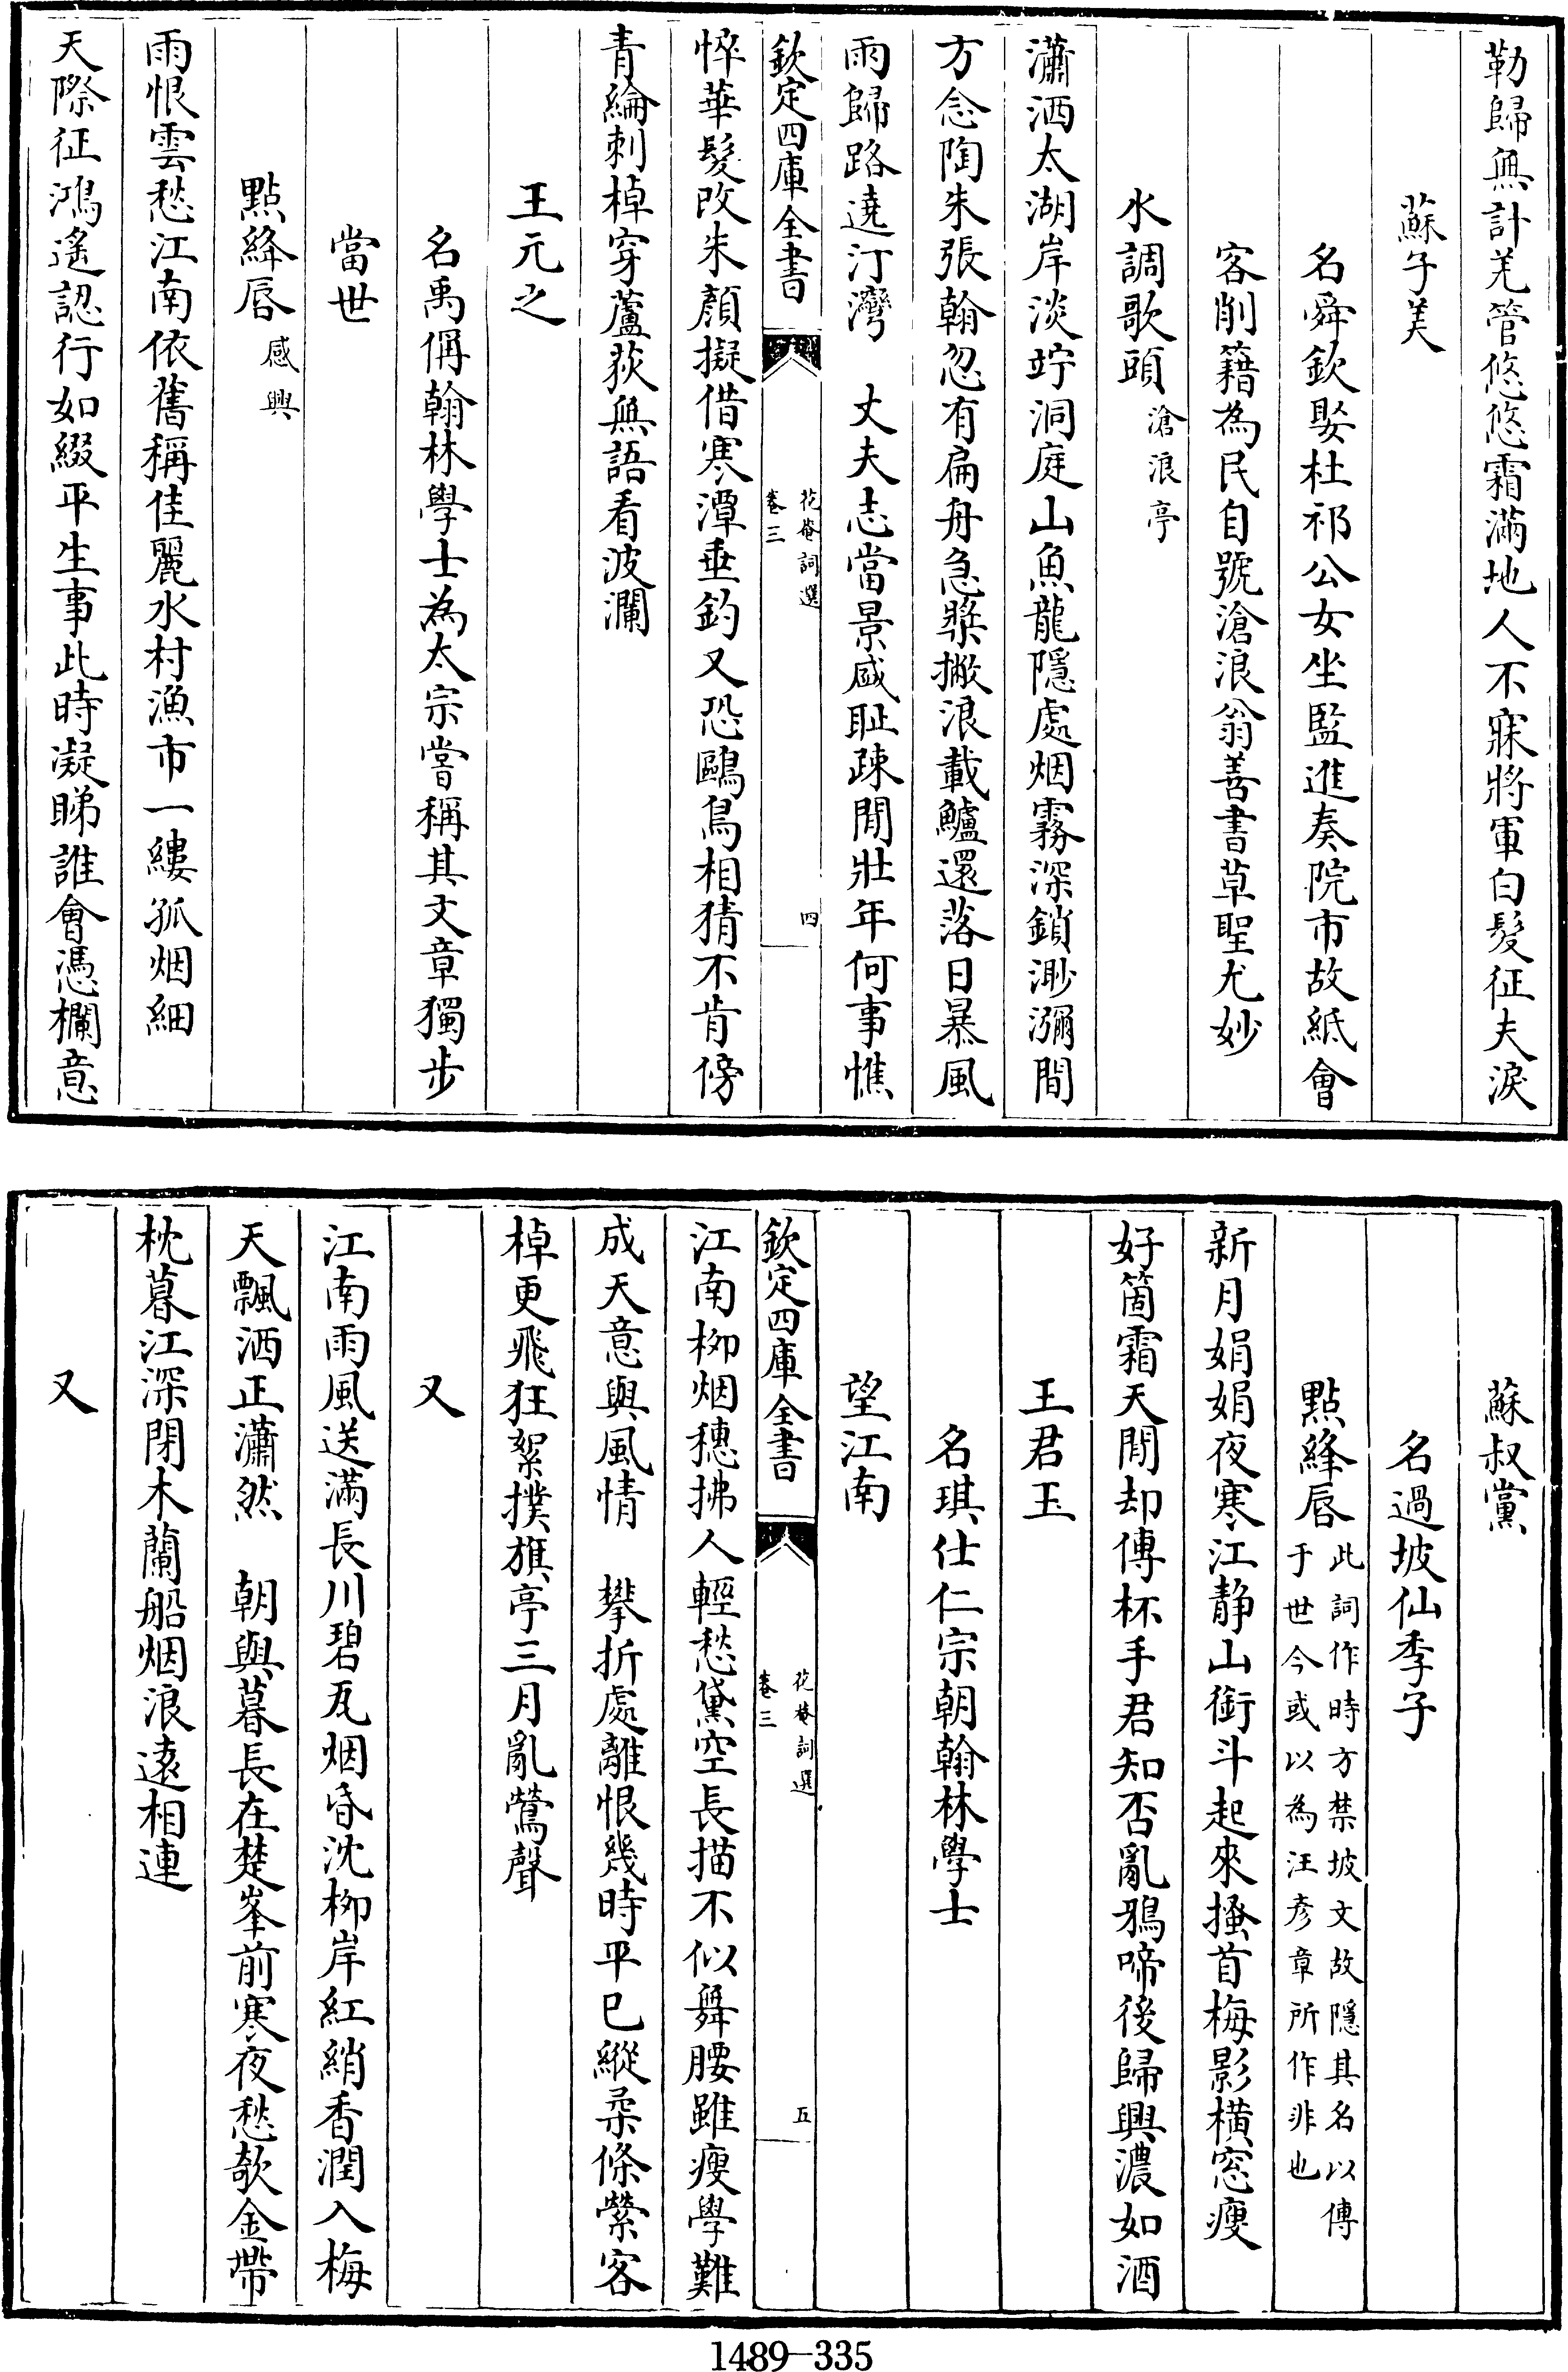 勒歸無計羌管悠悠霜滿地人不寐將軍白髮征夫淚
蘇子美
名舜欽娶杜祁公女坐監進奏院市故紙會
客削籍為民自號滄浪翁善書草聖尤妙
水調歌頭滄浪亭
瀟洒太湖岸淡竚洞庭山魚龍隱處烟霧深鎖渺瀰間
方念陶朱張翰忽有扁舟急槳撇浪載鱸還落日暴風
雨歸路遶汀灣　丈夫志當景盛耻疎閒壯年何事憔
欽定四庫全書
花菴詞選
卷三
四
悴華髮改朱顏擬借寒潭垂釣又恐鷗鳥相猜不肯傍
青綸刺棹穿蘆荻無語看波瀾
王元之
名禹偁翰林學士為太宗嘗稱其文章獨步
當世
點絳唇感興
雨恨雲愁江南依舊稱佳麗水村漁市一縷孤烟細
天際征鴻遙認行如綴平生事此時凝睇誰會憑欄意
蘇叔黨
名過坡仙季子
點絳唇此詞作時方禁坡文故隱其名以傳
于世今或以為汪彦章所作非也
新月娟娟夜寒江静山銜斗起來搔首梅影橫窓瘦
好箇霜天閒却傳杯手君知否亂鴉啼後歸興濃如酒
王君玉
名琪仕仁宗朝翰林學士
望江南
欽定四庫全書
花菴詞選
卷三
五
江南柳烟穗拂人輕愁黛空長描不似舞腰雖瘦學難
成天意與風情　攀折處離恨幾時平已縱柔條縈客
棹更飛狂絮撲旗亭三月亂鶯聲
又
江南雨風送滿長川碧瓦烟昏沈柳岸紅綃香潤入梅
天飄洒正瀟然　朝與暮長在楚峯前寒夜愁欹金帶
枕暮江深閉木蘭船烟浪遠相連
又
1489—335